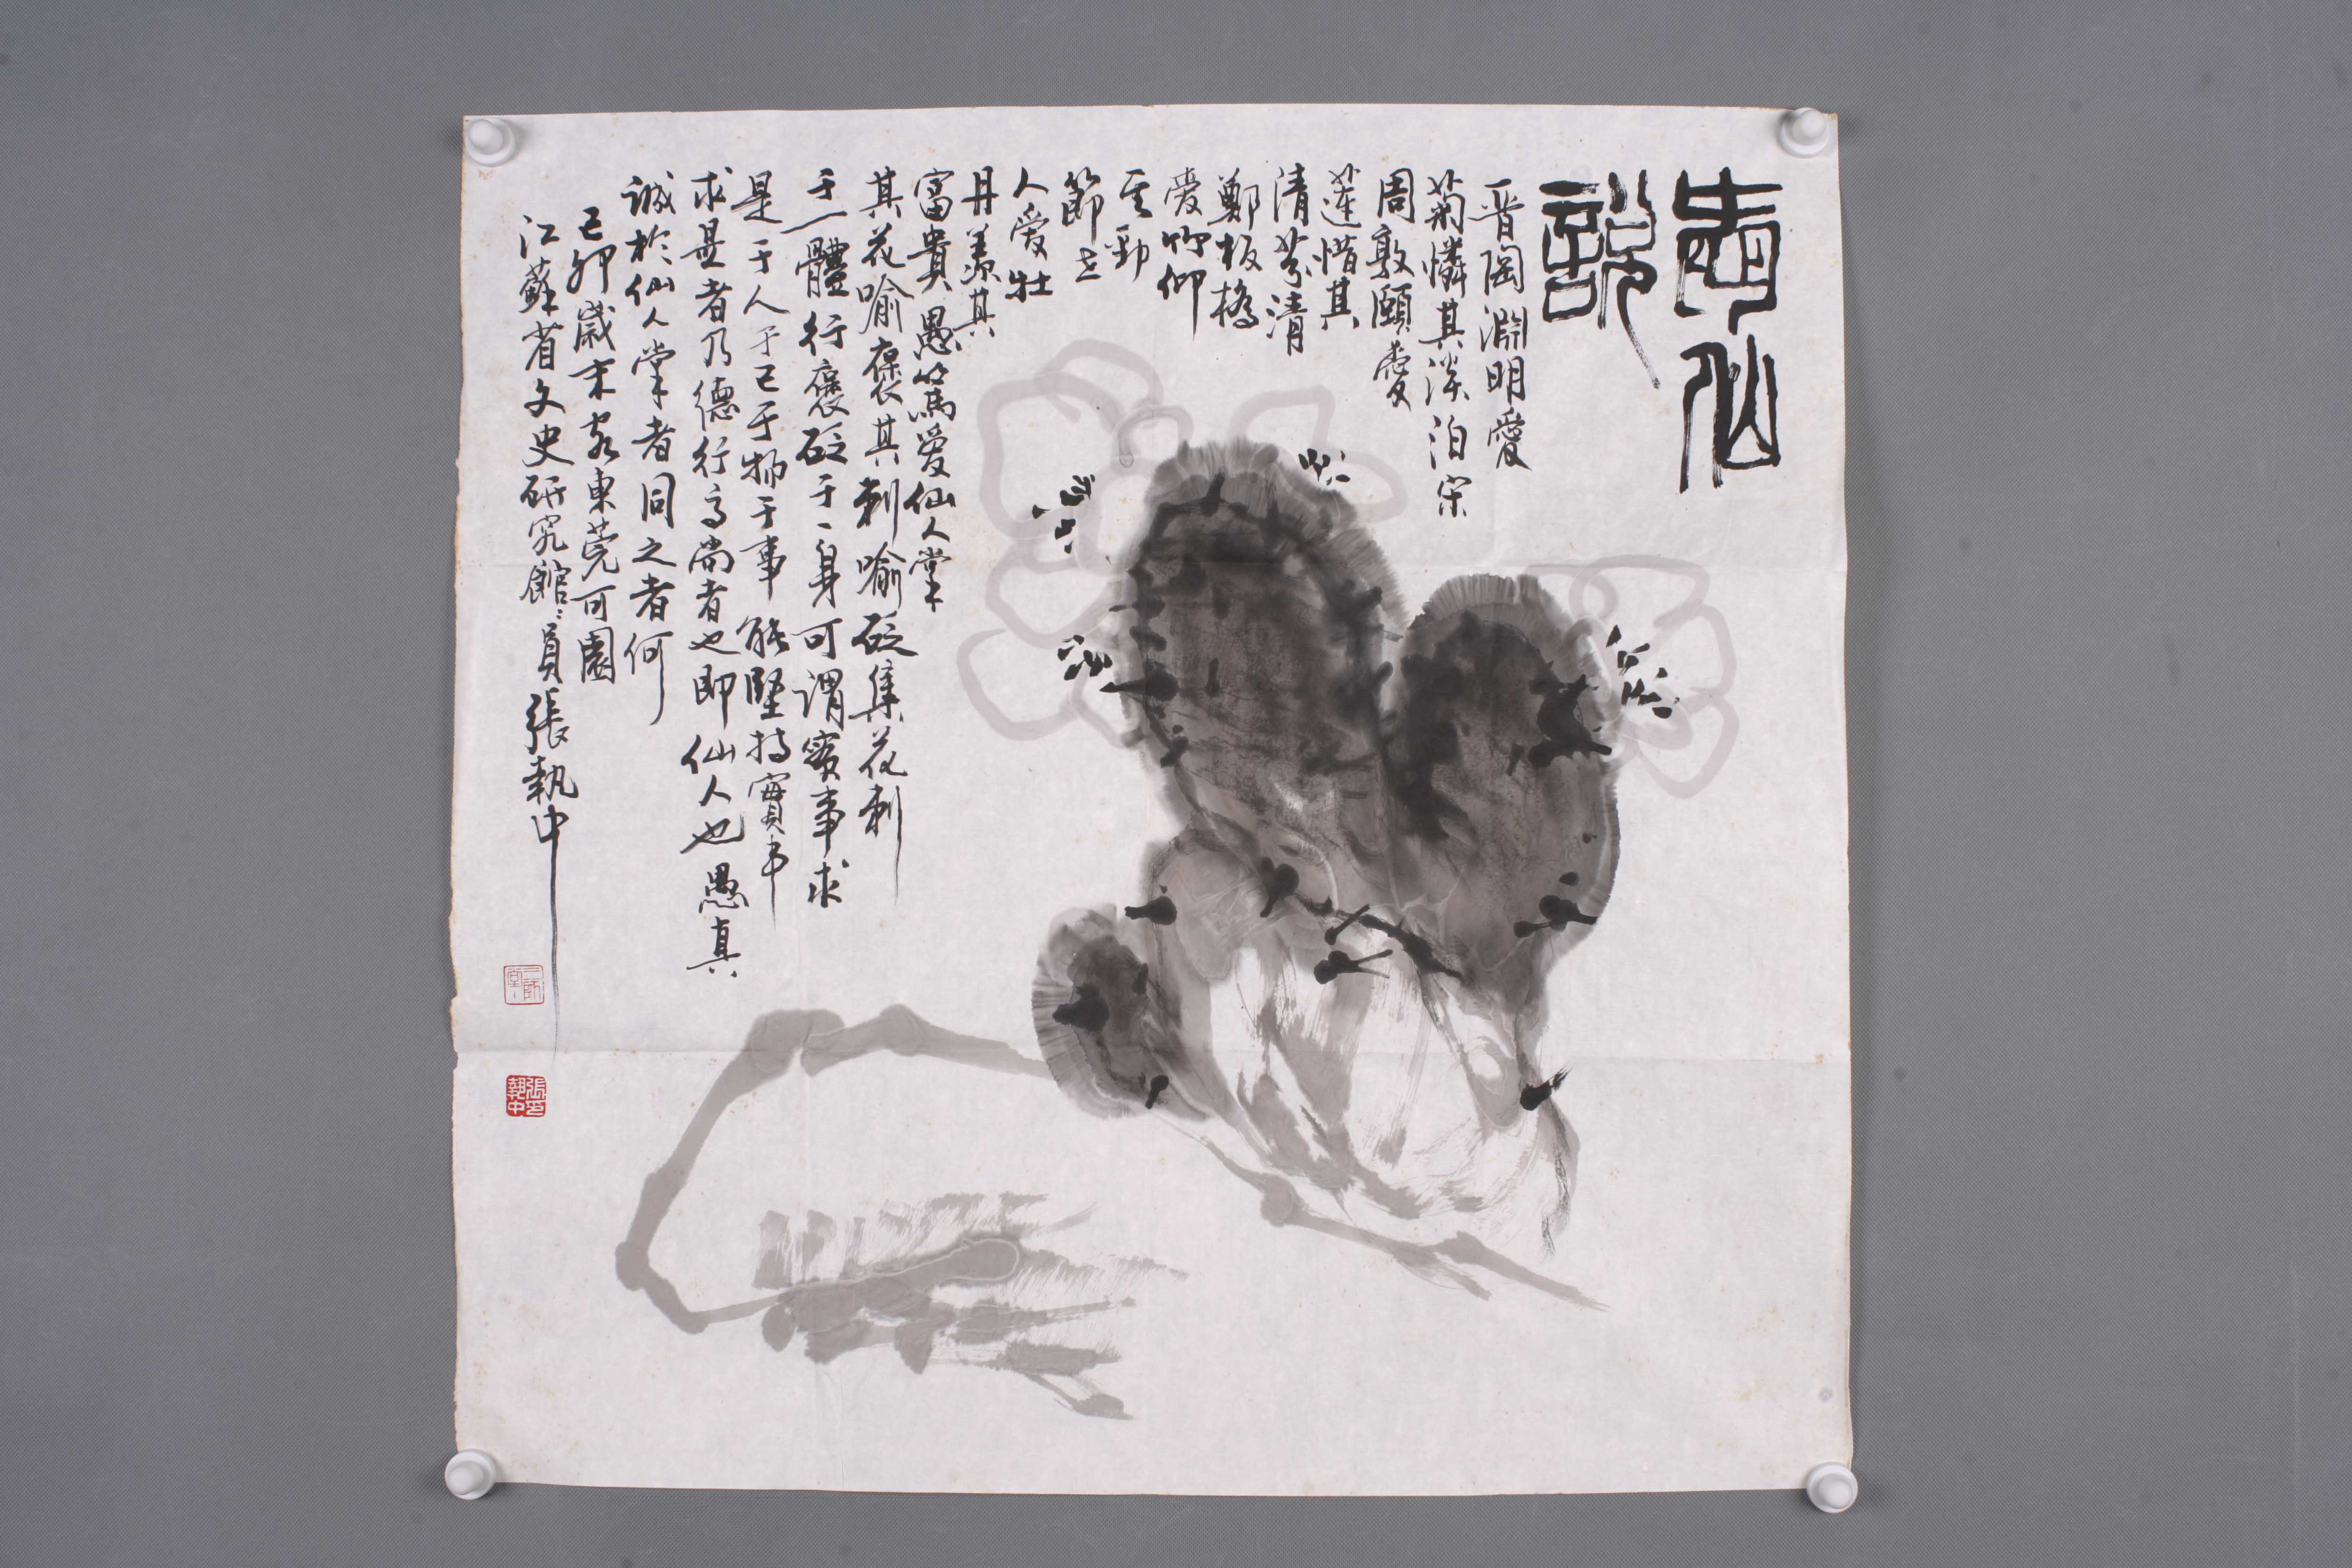 愛仙
說
晋陶淵明愛
菊憐其淡泊宋
周敦頤愛
蓮惜其
清芬清
鄭板橋
愛竹仰
其勁
節世
人愛牡
丹羨其
富貴愚篤爱仙人掌
其花喻褒其刺喻砭集花刺
于一體行褒砭于一身可谓實事求
是于人于己于物于事能堅持實事
求是者乃德行高尚者也即仙人也愚真
誠於仙人掌者同之者何
己卯歲末客東莞可園
江蘇省文史研究館館員張執中
張執中印